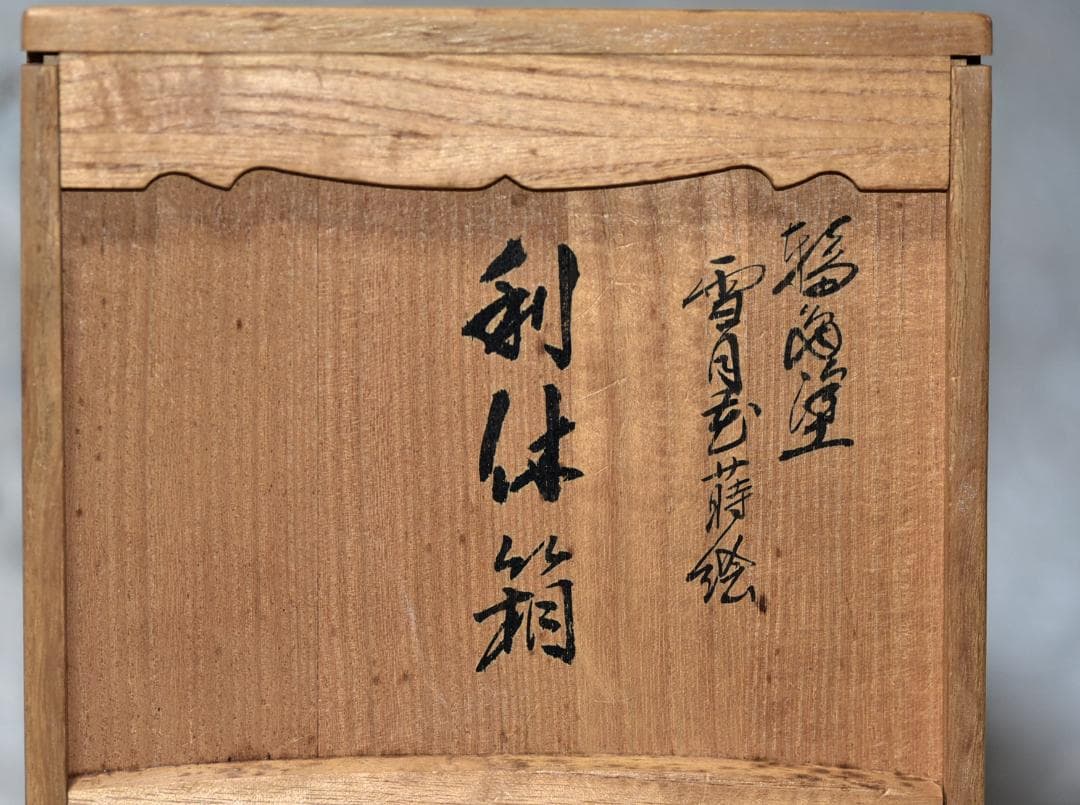 輪島塗
雪月花蒔絵
利休箱